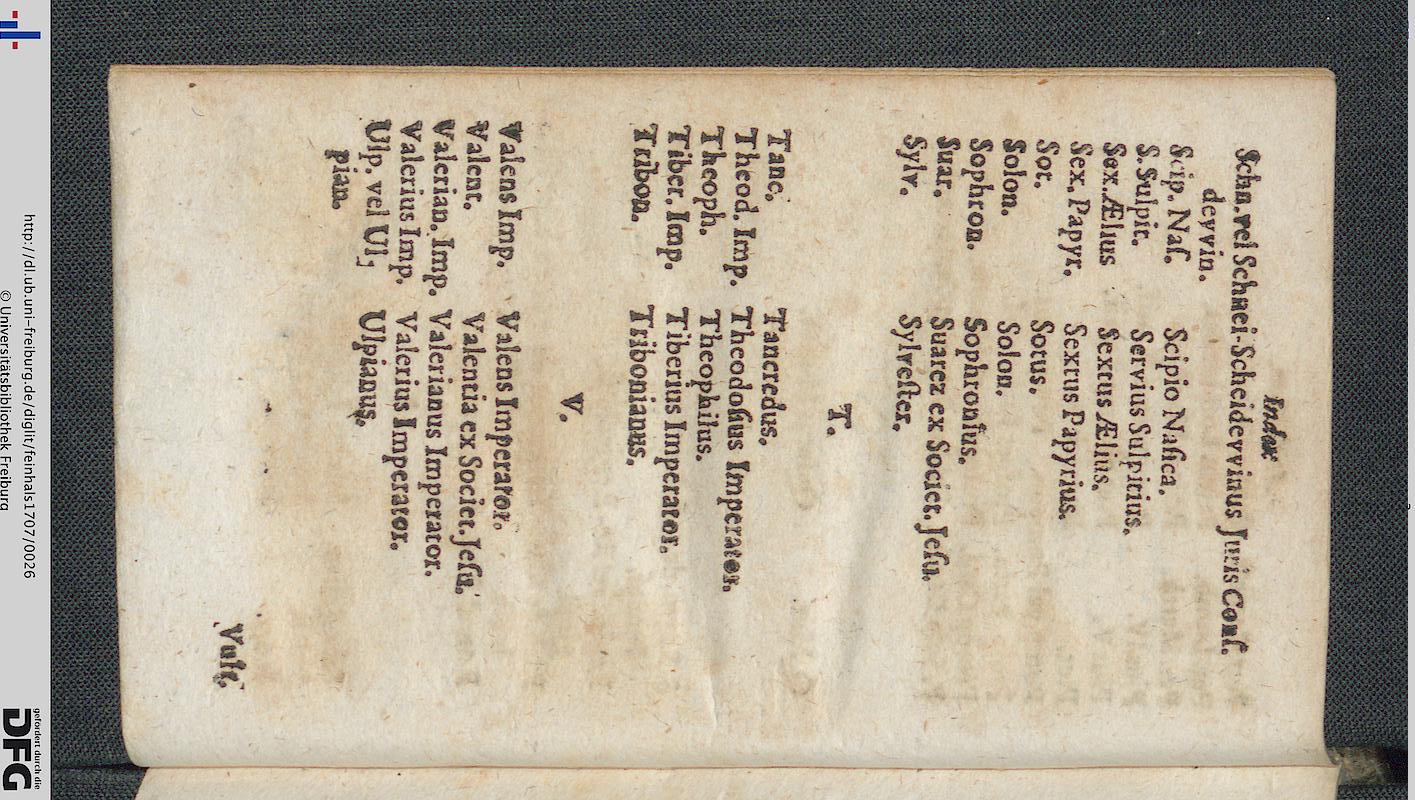 Index
Schn. vel Schnei-Scheidevvinus Juris Conſ.
devvin.
Scip. Naſ. Scipio Naſica.
S. Sulpit. Servius Sulpitius.
Sex. Ælius Sextus Ælius.
Sex. Papyr. Sextus Papyrius.
Sot. Sotus.
Solon. Solon.
Sophron. Sophronius.
Suar. Suarez ex Societ. Jeſu.
Sylv. Sylveſter.
T.
Tanc. Tancredus.
Theod. Imp. Theodoſius Imperator.
Theoph. Theophilus.
Tiber. Imp. Tiberius Imperator.
Tribon. Tribonianus.
V.
Valens Imp. Valens Imperator.
Valent. Valentia ex Societ. Jeſu.
Valerian. Imp. Valerianus Imperator.
Valerius Imp. Valerius Imperator.
Ulp. vel Ul- Ulpianus.
pian.
Vult.
http://dl.ub.uni-freiburg.de/diglit/feinhals1707/0026
© Universitätsbibliothek Freiburg
gefördert durch die
DFG